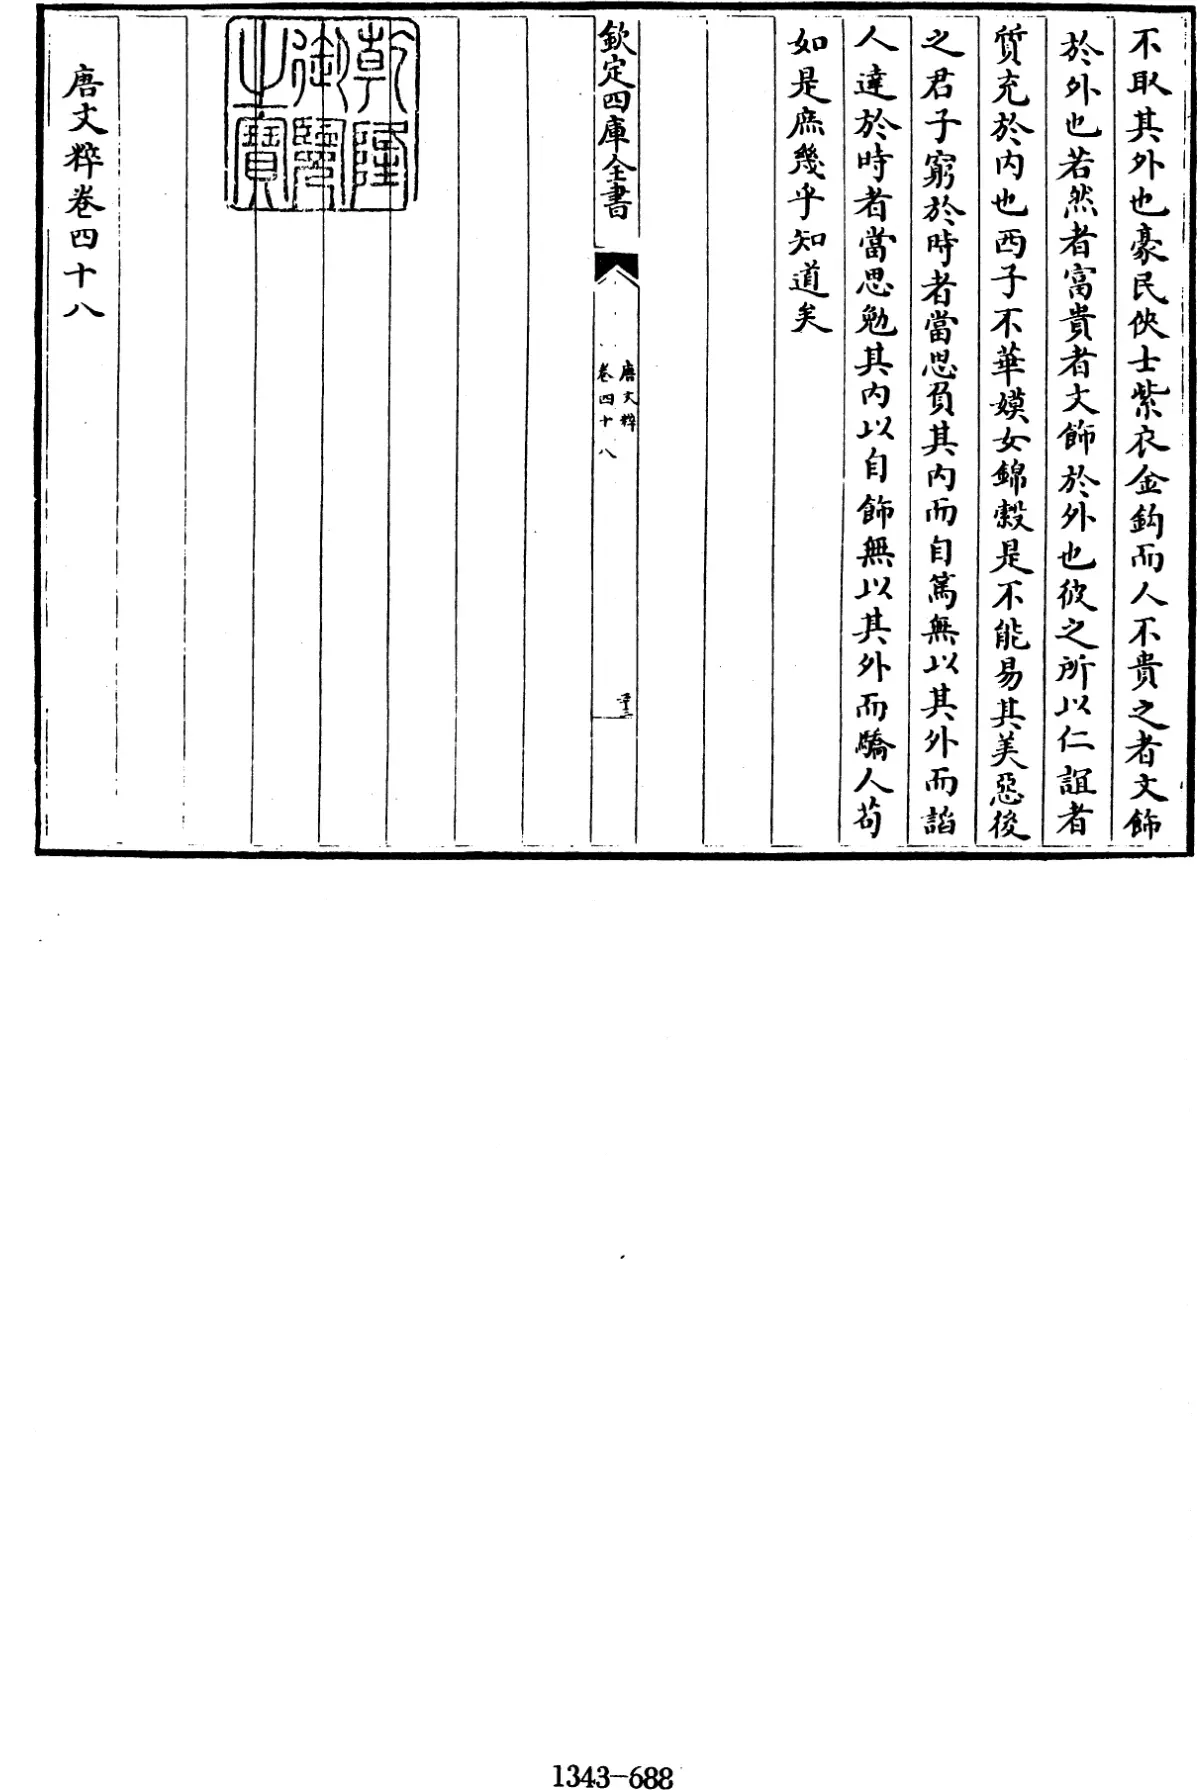 不取其外也豪民俠士紫衣金鈎而人不貴之者文飾
於外也若然者富貴者文飾於外也彼之所以仁誼者
質充於内也西子不華嫫女錦縠是不能易其美惡後
之君子窮於時者當思負其内而自篤無以其外而諂
人達於時者當思勉其内以自飾無以其外而驕人苟
如是庶幾乎知道矣
欽定四庫全書
唐文粹
卷四十八
乾隆
御覽
之寶
唐文粹卷四十八
1343-688